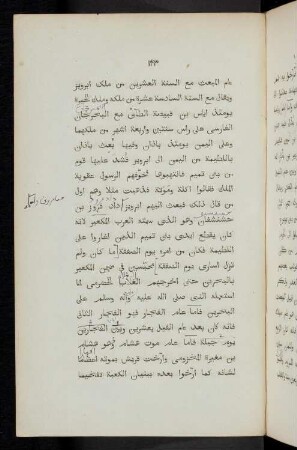 ١٤٣
عام المبعث مع السنة العشرين من ملك ابرويز
ويقال مع السنة السادسة عشرة من ملكه وملك الحيرة
يومئذ اياس بن قبيصة الطائي مع النخيرجان
الفارسي على راس سنتين واربعة اشهر من ملكهما
وعلى اليمن يومئذ باذان وفيها بعث باذان
باللطيمة من اليمن الى ابرويز فشد عليها قوم
من بني تميم فانتهبوها فخوفهم الرسول عقوبة
الملك فقالوا اكلة وموتة فذهبت مثلا وهم اول
من قال ذلك فبعث اليهم ابرويز داد فروز بن
جشنشفان وهو الذي سمته العرب المكعبر لانه
كان يقطع ايدي بني تميم الذين اغاروا على
اللطيمة فكان من امره يوم الصفقة ما كان ولم
تزل اسارى يوم الصفقة محبسين في سجن المكعبر
بالبحرين حتى اخرجهم العلاء الحضرمي لما
استعمله النبي صلى الله عليه وآله وسلم على
البحرين فاما عام الفجار فهو الفجار الثاني
فانه كان بعد عام الفيل بعشرين وبين الفجارين
يوم جبلة فاما عام موت هشام فهو هشام
بن مغيرة المخزومي وارخت قريش بموته اعظاما
لشانه كما ارخوا بعده ببنيان الكعبة تفخيما